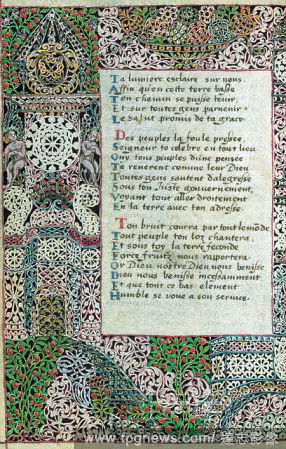 Ta lumiere esclaire sur nous.
Affin qu'en cette terre basse
Ton chemin se puisse veur,
Et sur toutes gens parvenir
Le salut promis de ta grace.
Des peuples la foule presée,
Seigneur te celebre en tout lieu
Ouy tous peuples d'une pensée
Te reverent comme leur Dieu
Toutes gens sautent d'alegresse
Sous ton Juste gouvernement,
Voyant tout aller droitement
En la terre avec ton adresse.
Ton bruit courra par tout le monde
Tout peuple ton loz chantera
Et sous toy la terre feconde
Force fruitz nous raportera
Or Dieu nostre Dieu nous benisse
Dieu nous benisse incessamment
Et que tout ce bas element
Humble se voue a son service.
www.tpgnews.com/達志影像